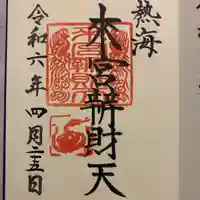 熱海
來宮辨財天
令和六年四月二五日